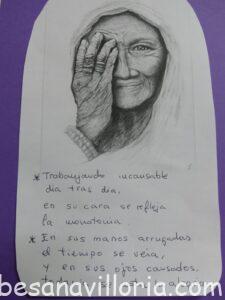 * Trabanjando incansable
día tras día,
en su cara se refleja
la monotonia.
* En sus manos arrugadas
el tiempo se verá,
y en sus ojos cansados,
besanavilloria.com